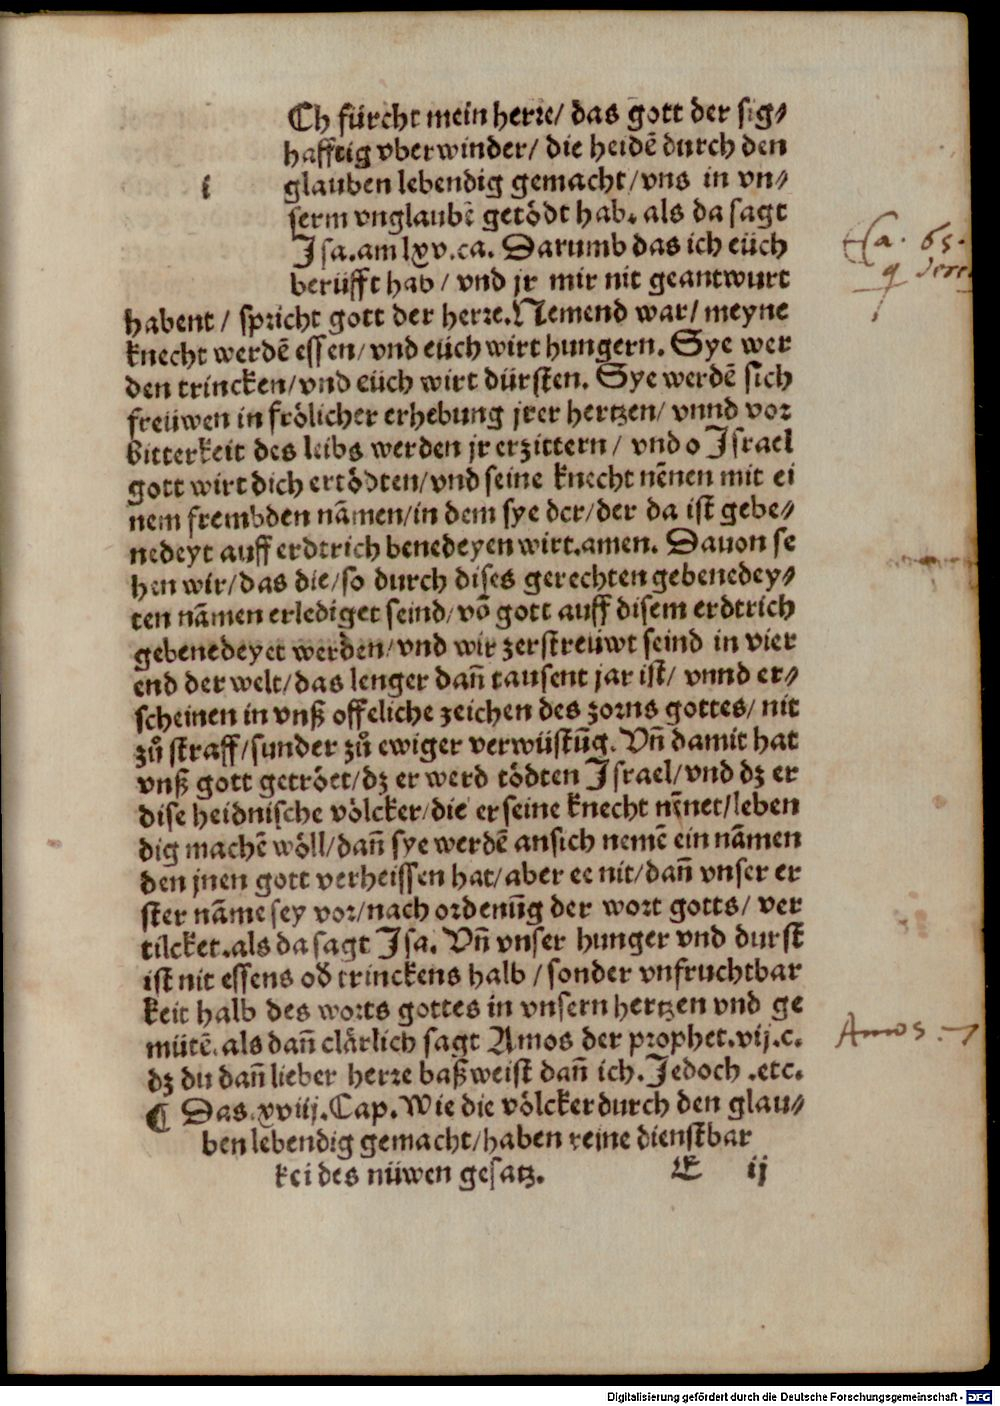 Ch fürcht mein herre/ das gott der sig⸗
hafftig vberwinder/ die heidē durch den
i glauben lebendig gemacht/ vns in vn⸗
serm vnglaubē getödt hab. als da sagt
Isa. am lxv. ca. Darumb das ich eüch
berüfft hab / vnd jr mir nit geantwurt
habent / spricht gott der herre. Nemend war/ meyne
knecht werdē essen/ vnd eüch wirt hungern. Sye wer
den trincken/ vnd eüch wirt dürsten. Sye werdē sich
freüwen in frölicher erhebung jrer hertzen/ vnnd vor
bitterkeit des leibs werden jr erzittern / vnd o Israel
gott wirt dich ertödten/ vnd seine knecht nēnen mit ei
nem frembden nāmen/ in dem sye der/ der da ist gebe⸗
nedeyt auff erdtrich benedeyen wirt. amen. Dauon se
hen wir/ das die/ so durch dises gerechten gebenedey⸗
ten nāmen erlediget seind/ vō gott auff disem erdtrich
gebenedeyet werden/ vnd wir zerstreüwt seind in vier
end der welt/ das lenger dañ tausent jar ist/ vnnd er⸗
scheinen in vnß offeliche zeichen des zorns gottes/ nit
zů straff/ sunder zů ewiger verwüstūg. Vñ damit hat
vnß gott getröet/ dz er werd tödten Israel/ vnd dz er
dise heidnische völcker/ die er seine knecht nēnet/ leben
dig machē wöll/ dañ sye werdē an sich nemē ein nāmen
den jnen gott verheissen hat/ aber ee nit/ dañ vnser er
ster nāme sey vor/ nach ordenūg der wort gotts/ ver
tilcket. als da sagt Isa. Vñ vnser hunger vnd durst
ist nit essens od trinckens halb / sonder vnfruchtbar
keit halb des worts gottes in vnsern hertzen vnd ge
mütē. als dañ clärlich sagt Amos der prophet. vij. c.
dz du dañ lieber herre baß weist dañ ich. Jedoch .etc.
¶ Das. xviij. Cap. Wie die völcker durch den glau⸗
ben lebendig gemacht/ haben reine dienstbar
kei des nüwen gesatz. E ij
Esa. 65.
Amos. 7
Digitalisierung gefördert durch die Deutsche Forschungsgemeinschaft - DFG